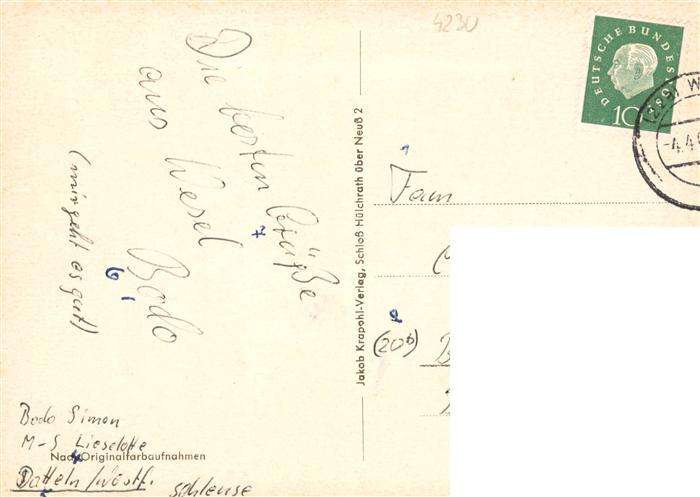 4230
Die besten Grüße
aus Wesel
Bodo
(mir geht es gut)
Bodo Simon
M-S Lieselotte
Nach Originalfarbaufnahmen
Datteln/Westf.
schleuse
Jakob Krapohl-Verlag, Schloß Hülchrath über Neuß 2
DEUTSCHE BUNDES
10
(22a) W
-4.4
Fam
(20b) B